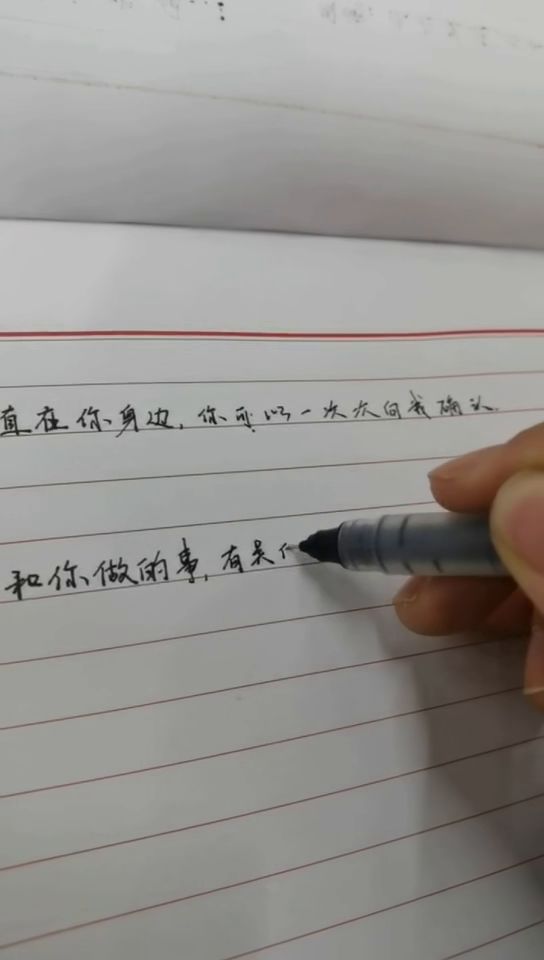 直在你身边,你可以一次次向我确认.
和你做的事,有